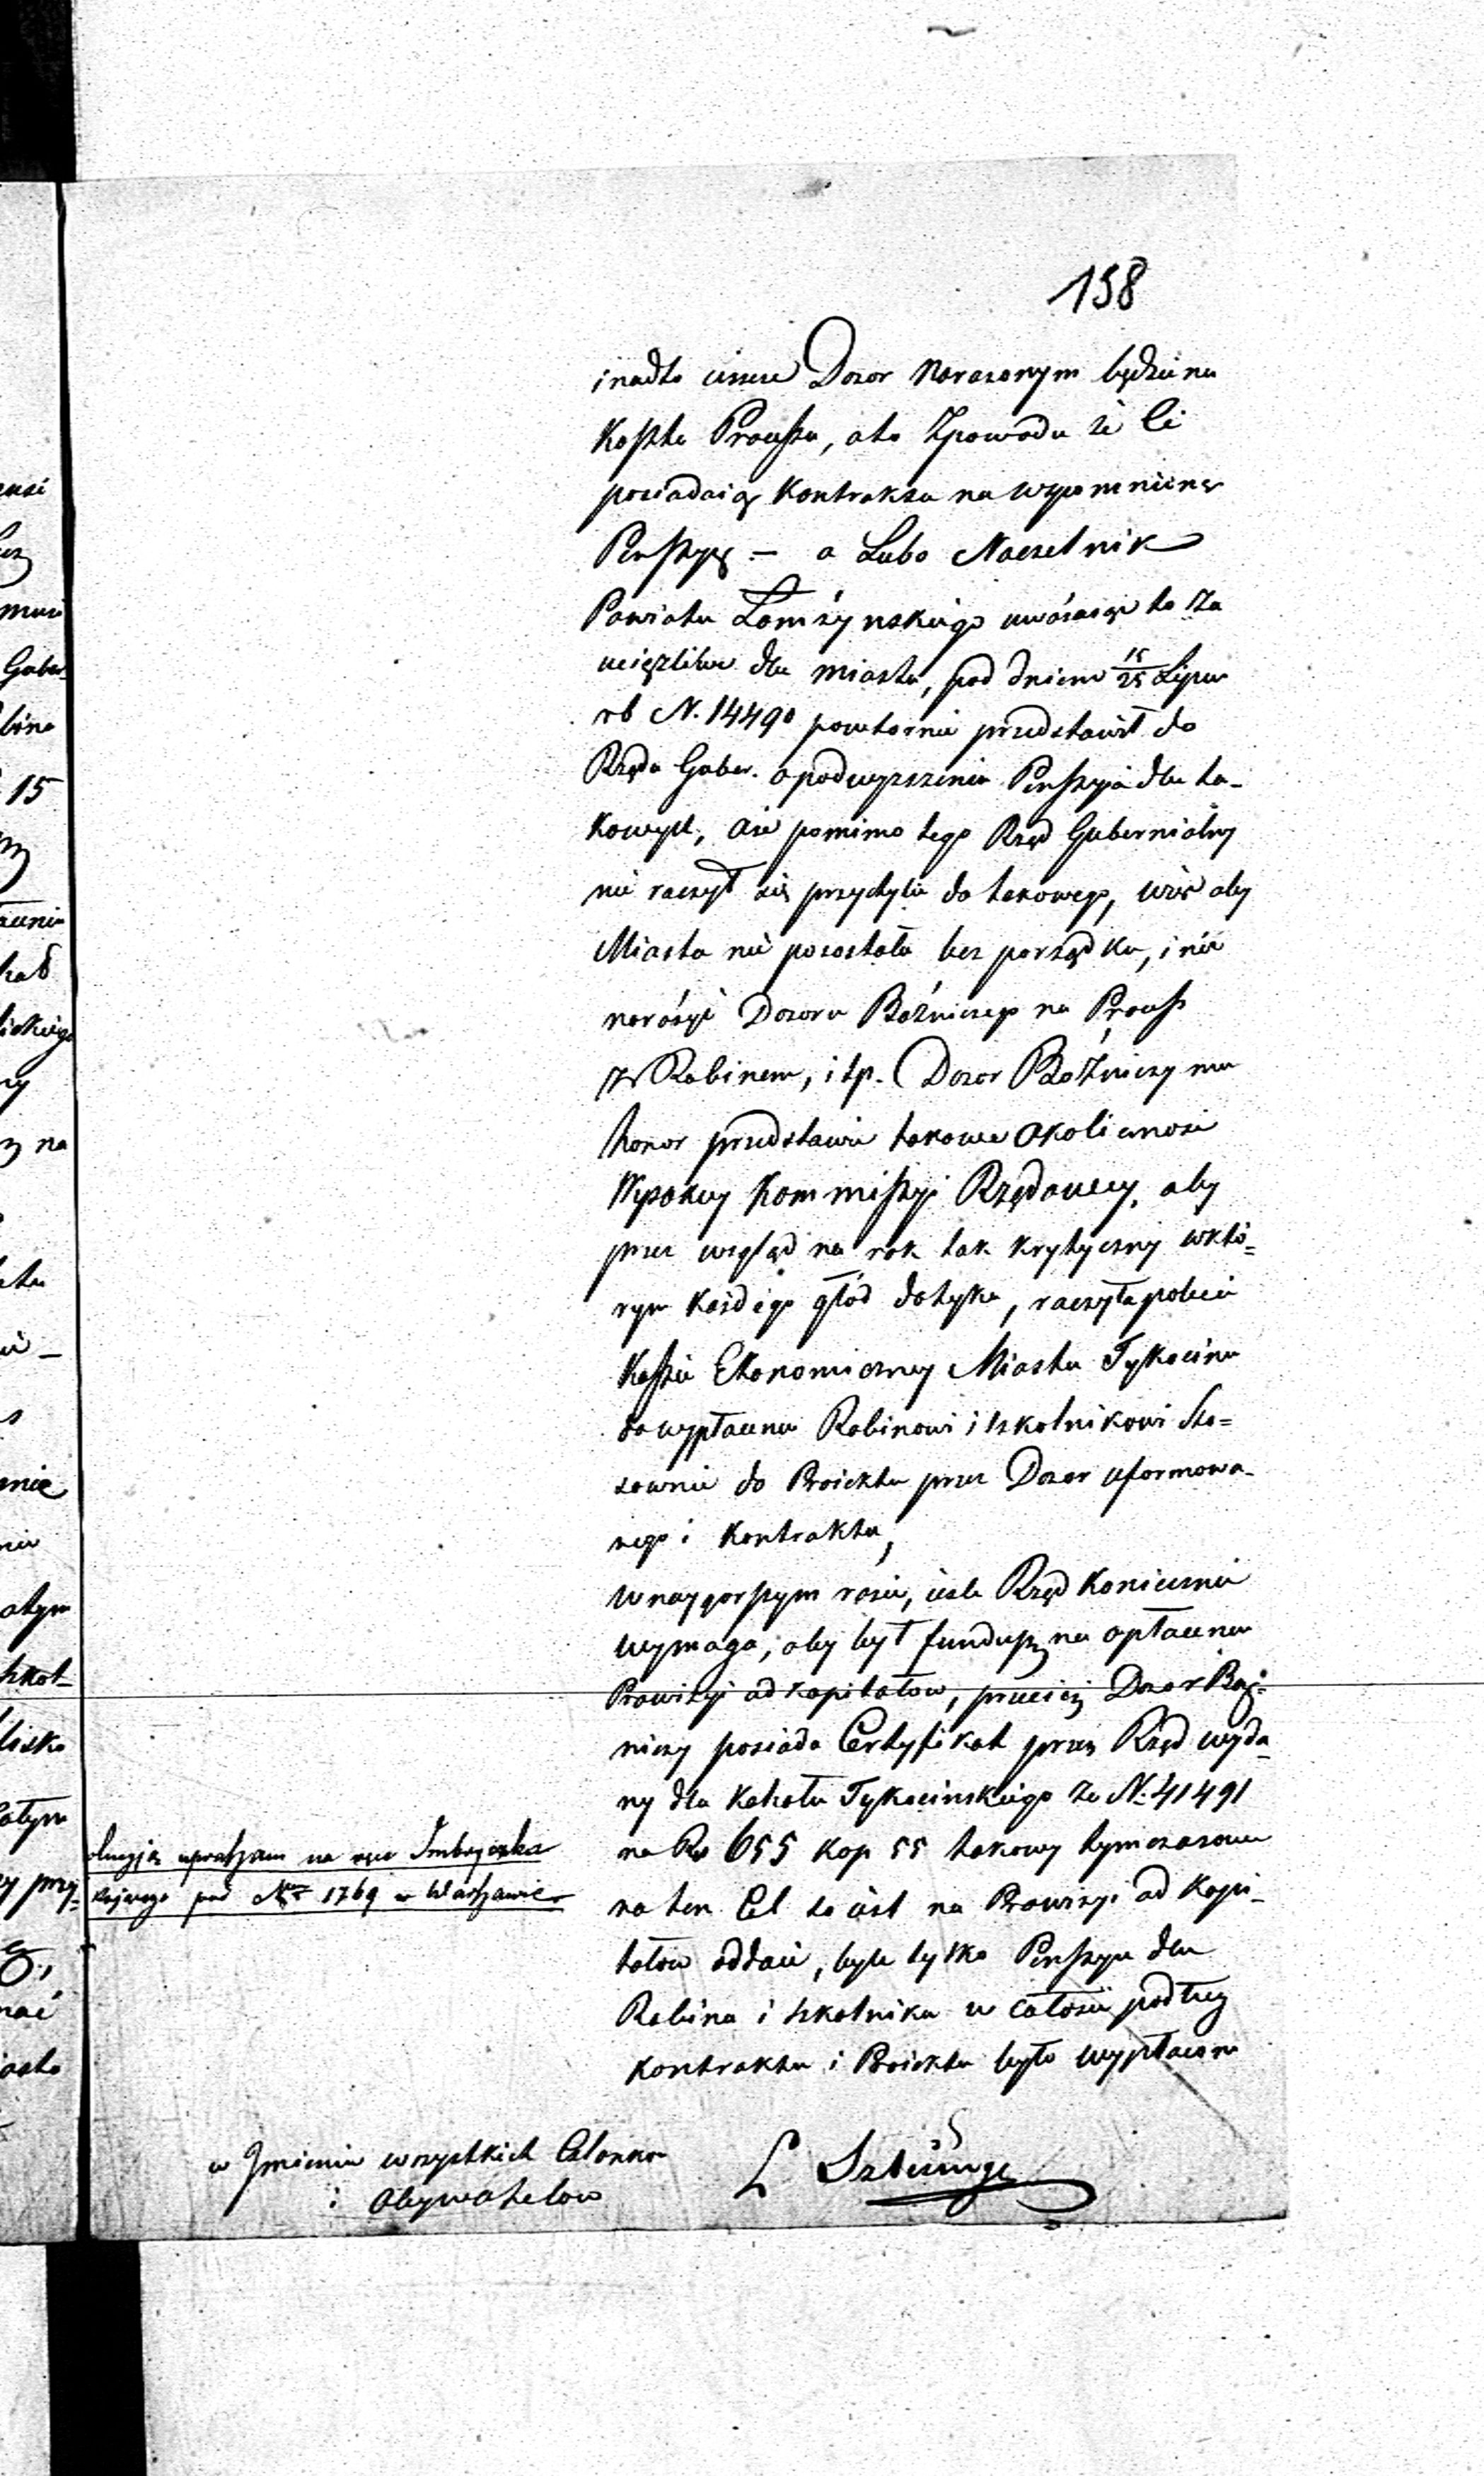 158
i nadto ieszcze Dozor narazonym będzie na
Koszta Processu, a to z powodu że Ci
posiadaią Kontrakta na wspomnioną
Penszyę – a Lubo Naczelnik
Powiatu Łomżynskiego uważaiąc to za
uciążliwe dla miasta, pod dniem 15/25 Lipca
rb N. 14490 powtornie przedstawił do
Rządu Guber. o podwyzszenie Penszyi dla ta-
kowych, ale pomimo tego Rząd Gubernialny
nie raczył się przychylic do takowego, więc aby
Miasto nie pozostało bez porządku, i nie
narażyć Dozoru Bóżniczego na Process
z Rabinem, i tp. Dozor Bóżniczy ma
honor przedstawic takowe okoliczności
Wysokiey Kommissyi Rządowey, aby
przez wzgląd na rok tak krytyczny w któ=
rym każdego głód dotyka, raczyła polecic
Kassie Ekonomiczney Miasta Tykocina
do wypłacenia Rabinowi i szkolnikowi Sto=
sownie do Proiektu przez Dozor uformowa-
nego i Kontraktu,
W naygorszym razie, ieżeli Rząd koniecznie
wymaga, aby był fundusz na opłacenie
Prowizyi od kapitałow, przecież Dozor Boż=
niczy posiada Certyfikat przez Rząd wyda-
ny dla Kahału Tykocinskiego za N. 41491
na Rs 655 kop 55 takowy tymczasowie
na ten Cel to iest na Prowizyi od kapi-
tałow oddaie, byle tylko Penszya dla
Rabina i szkolnika w całości podług
Kontraktu i Proiektu była wypłacona
olucyją upraszam na ręce Imbryczka
kającego pod Nr 1769 w Warszawie
w Jmieniu wszystkich Członkow
i Obywatelow
L Sztűnge